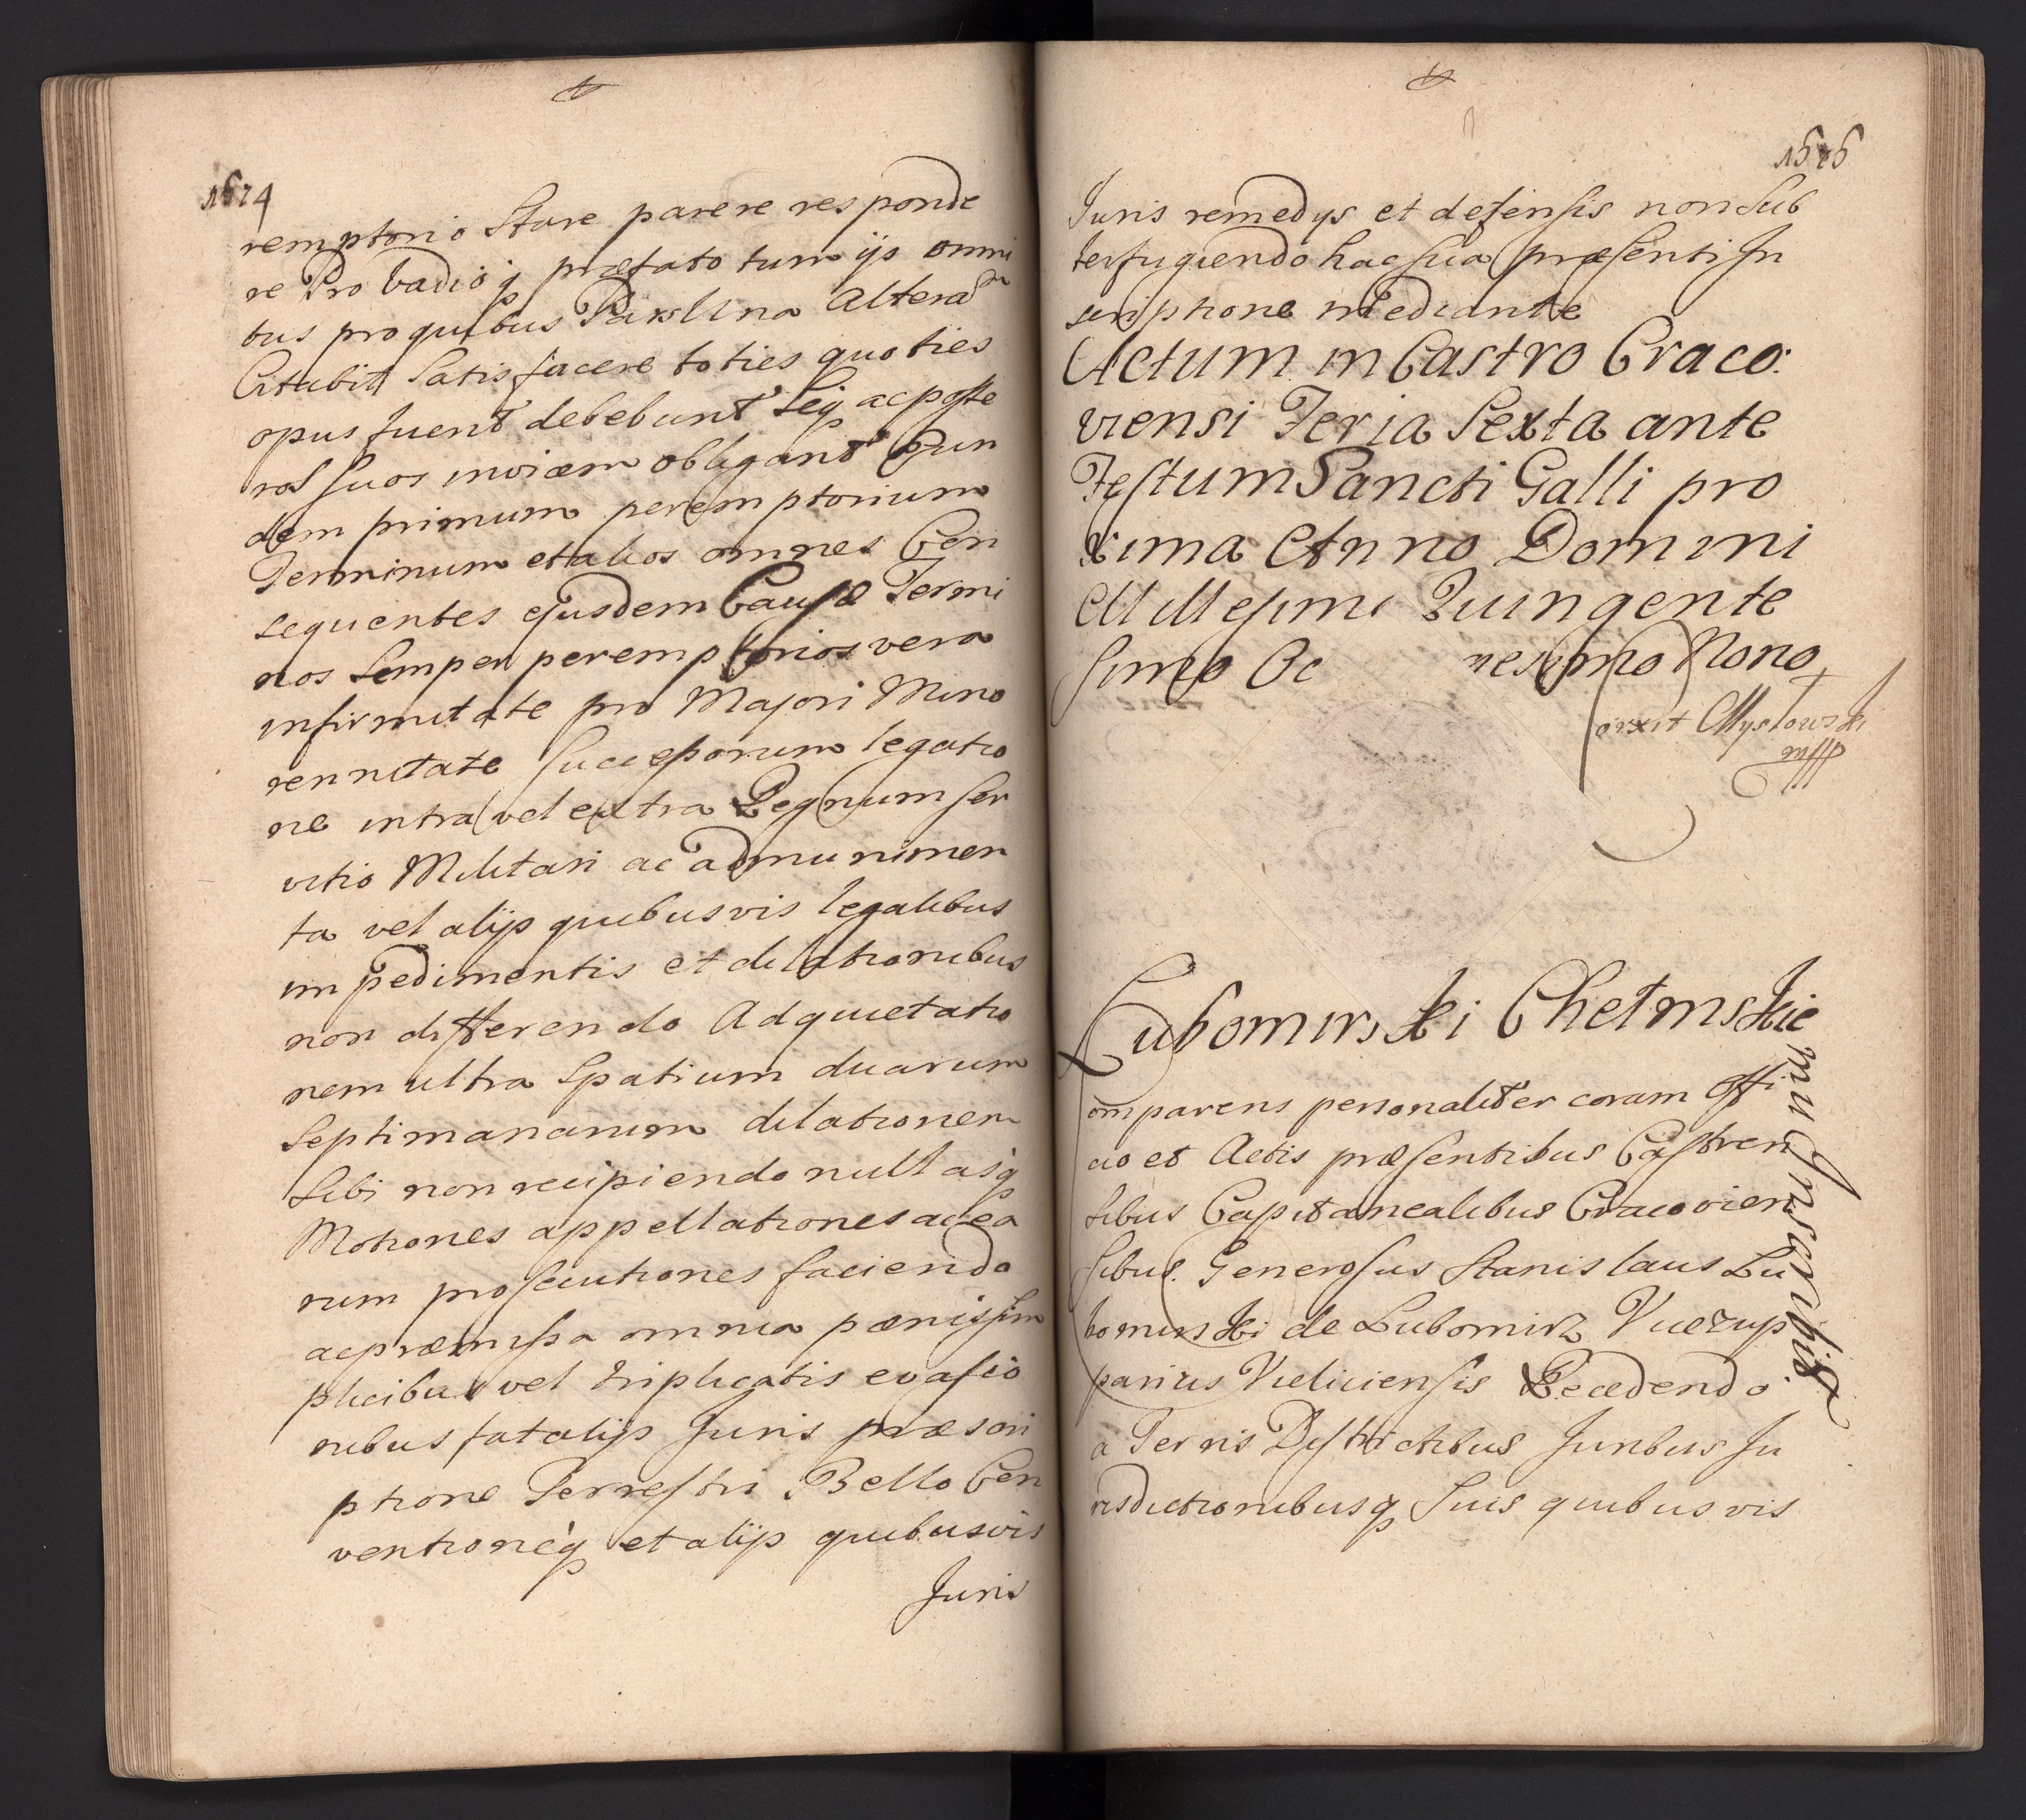 1624
remptorio Stare parere responde
re Pro Vadioq præfato tum ijs omni
bus pro quibus Pars Una Alteram
Citabit Satisfacere toties quoties
opus fuerit debebunt Seq ac poste
ros suos invicem obligant Eun
dem primum peremptorium
Terminum et alios omnes Con
sequentes ejusdem Causæ Termi
nos Semper peremptorios vera
infirmitate pro Majori Mino
rennitate Succeßorum legatio
ne intra vel extra Regnum ser
vitio Militari ac ad munimen
ta vel alijs quibusvis legalibus
impedimentis et dilationibus
non differendo Ad quietatio
nem ultra Spatium duarum
Septimanarum dilationem
Sibi non recipiendo nullasq
Motiones appellationes ac ea
rum prosecutiones faciendo
ac præmissa omnia pænis sim
plicibus vel triplicatis evasio
nibus fatalijs Juris præscri
ptione Terrestri Bello Con
ventioneq et alijs quibusvis
Juris
Juris remedys et defensis non Sub
terfugiendo hac sua præsenti In
scriptione mediante
Actum in Castro Craco:
viensi Feria Sexta ante
Festum Sancti Galli pro
xima Anno Domini
Millesimo Quingente
simo Oc nesimo Nono
Myslowski
mpp
Lubomirski Chełmskie
mu Inscribit
omparens personaliter coram Offi
cio et Actis præsentibus Castren
sibus Capitanealibus Cracovien
sibus Generosus Stanislaus Lu
bomirski de Lubomirz Vicezup
parius Vieliciensis Recedendo
a Terris Districtibus Juribus Ju
risdictionibusq Suis quibusvis